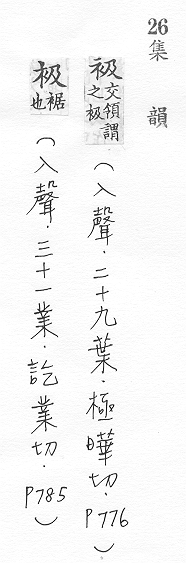 26集韻
衱交領謂之衱(入聲．二十九葉．極曄切．P776)
衱裾也(入聲．三十一業．訖業切．P785)